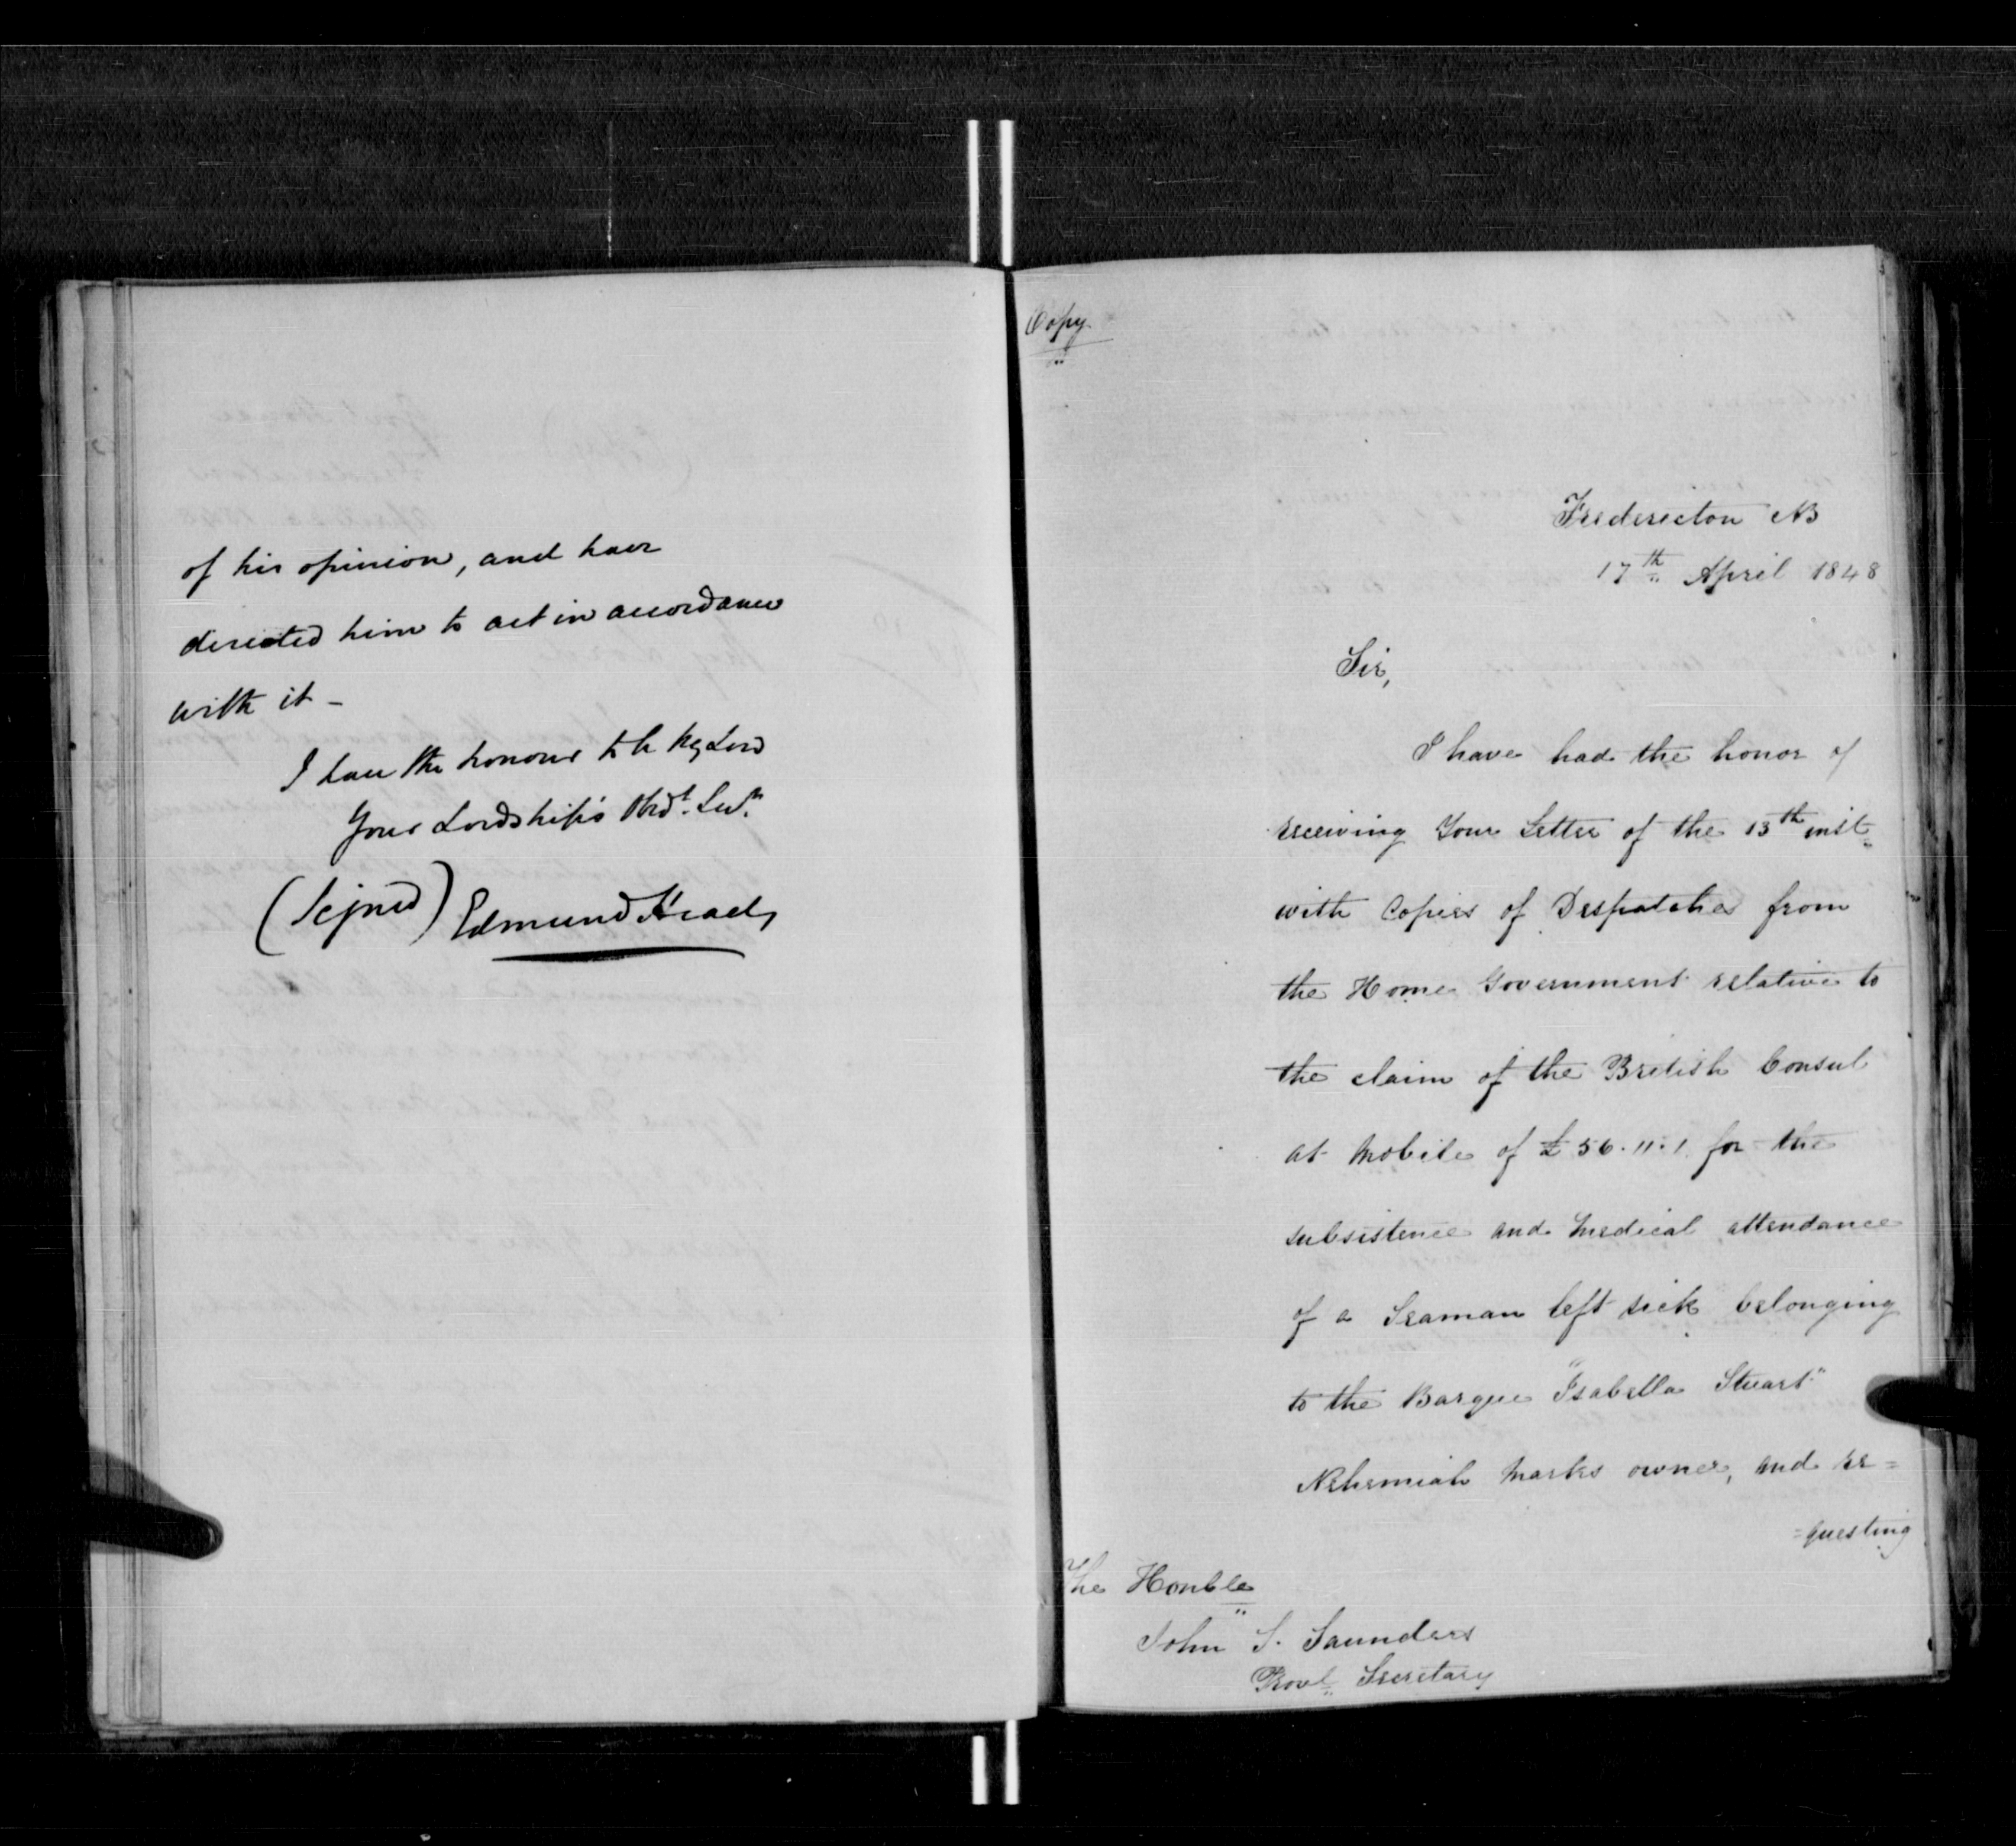 of his opinion, and have
directed him to act in accordance
with it –
I have the honour to be My Lord
Your Lordship's Obdt. Servt.
(Signed) Edmund Head,
Copy.
Fredericton NB
17th April 1848
Sir,
I have had the honor of
receiving Your Letter of the 13th inst
with Copies of Despatches from
the Home Government relative to
the claim of the British Consul
at Mobile of £56.11.1 for the
subsistence and Medical attendance
of a Seaman left sick belonging
to the Barque "Isabella Stuart"
Nehemiah Marks owner, and re=
=questing
The Honble
John S. Saunders
Provl. Secretary